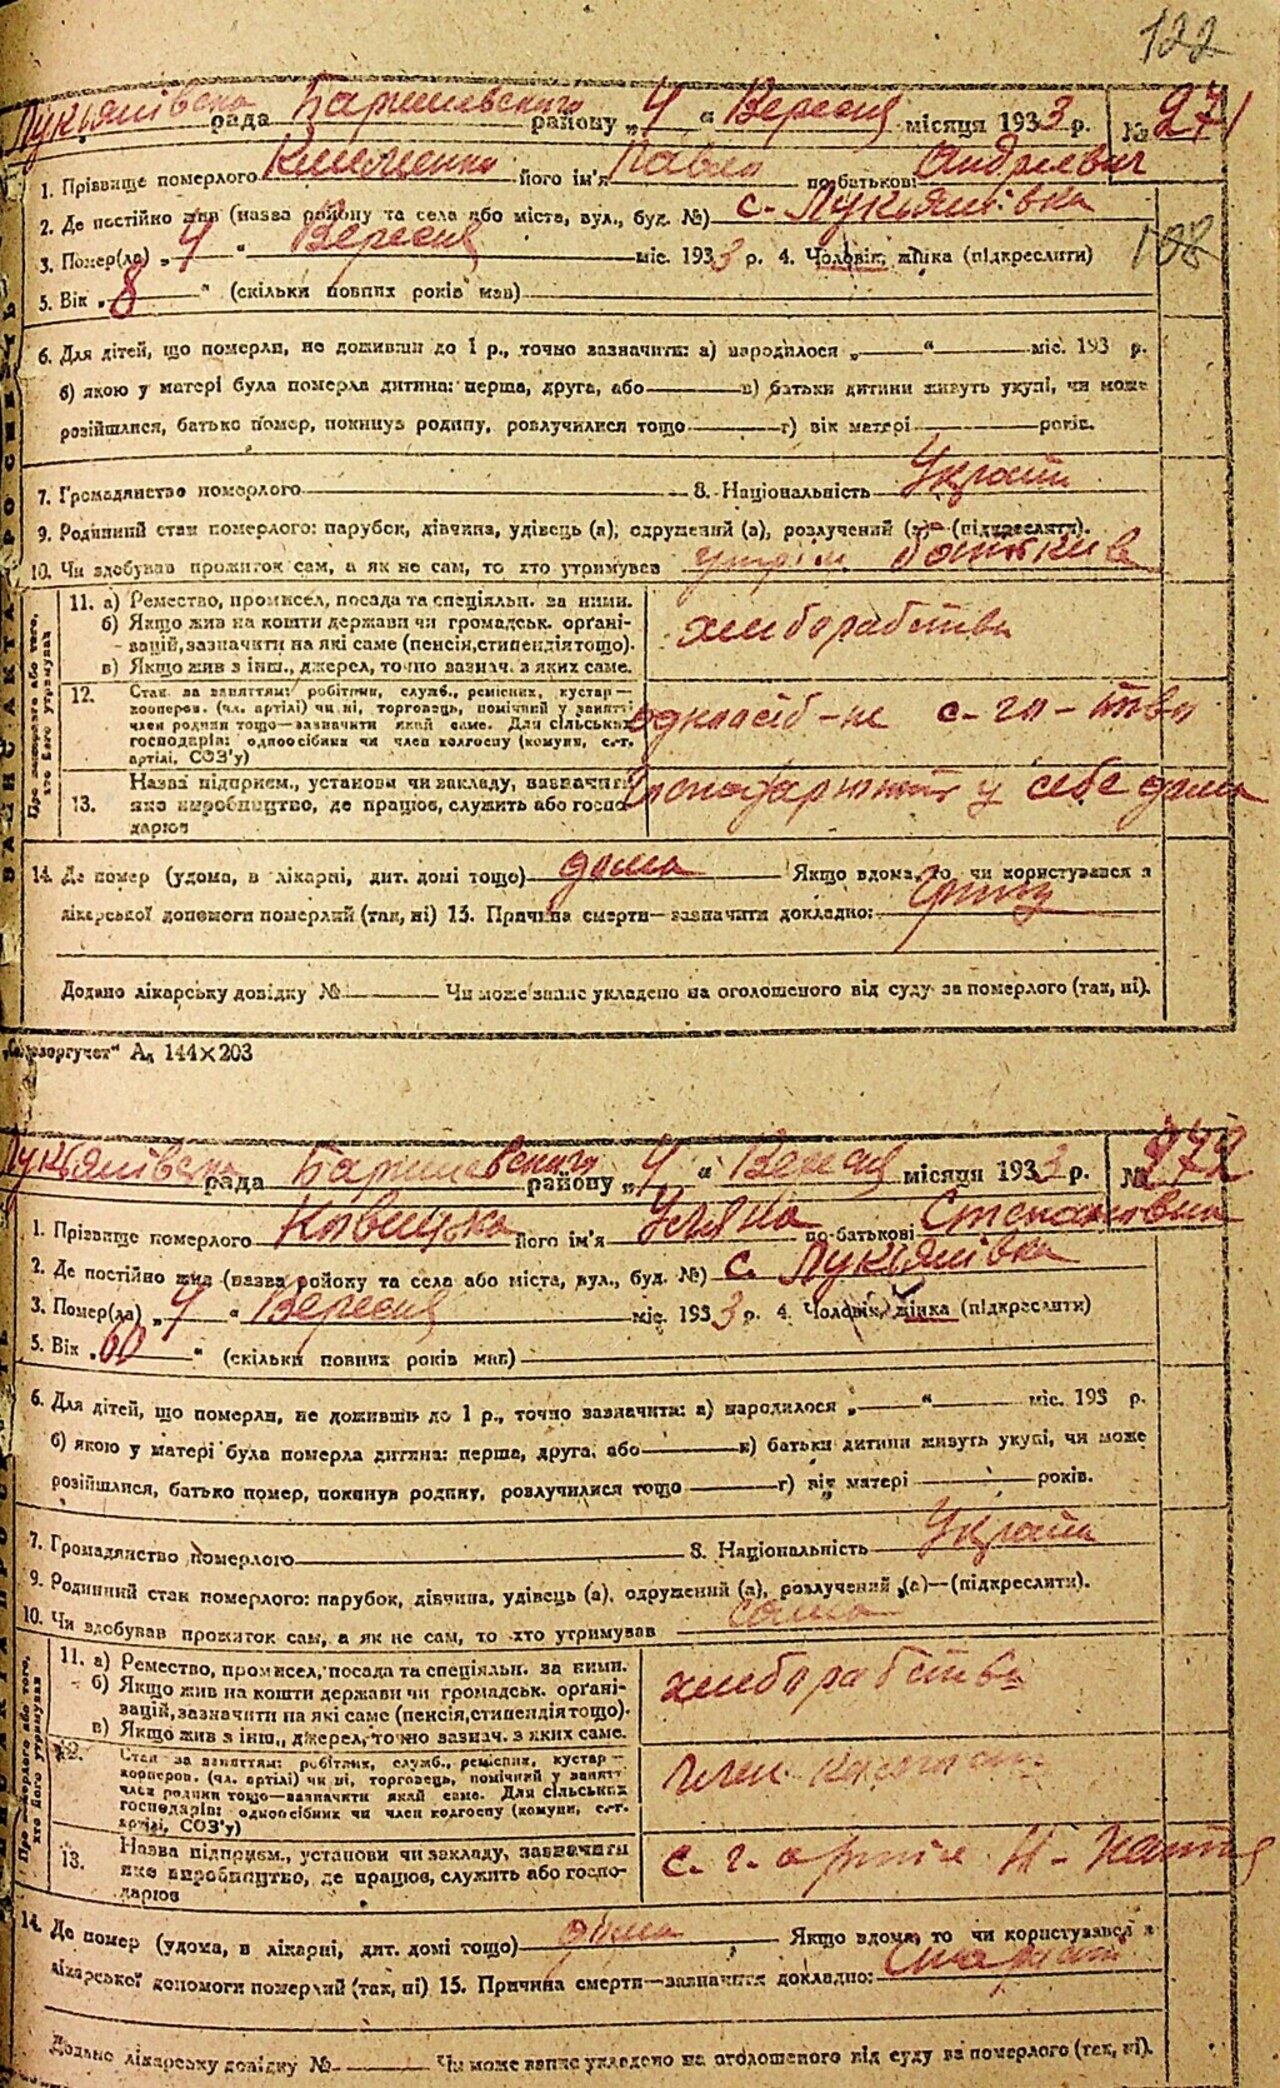 122
Лукьянівська рада Баришевського району „4 “ Вересня місяця 1933 р. № 271
1. Прізвище померлого Клименко його ім'я Павло по батькові Андрієвич
2. Де постійно жив (назва району та села або міста, вул., буд. №) с. Лукьянівка
3. Помер(ла) „4 “ Вересня міс. 1933 р. 4. Чоловік, жінка (підкреслити)
108
5. Вік „8 “ (скільки повних років мав)
6. Для дітей, що померли, не доживши до 1 р., точно зазначити: а) народилося „ “ міс. 193 р.
б) якою у матері була померла дитина: перша, друга, або в) батьки дитини живуть укупі, чи може
розійшлися, батько помер, покинув родину, розлучилися тощо г) вік матері років.
7. Громадянство померлого 8. Національність Україн
9. Родинний стан померлого: парубок, дівчина, удівець (а), одружений (а), розлучений (а)—(підкреслити).
10. Чи здобував прожиток сам, а як не сам, то хто утримував утрім. батьків
ЗАПИС АКТА РОСМЕРТЬ
Про померлого або того, хто його утримував
11. а) Ремество, промисел, посада та спеціяльн. за ними.
б) Якщо жив на кошти держави чи громадськ. органі-
зацій, зазначити на які саме (пенсія, стипендія тощо).
в) Якщо жив з інш., джерел, точно зазнач. з яких саме.
хлиборабство
12. Стан за заняттям: робітник, служб., ремісник, кустар—
кооперов. (чл. артілі) чи ні, торговець, помічний у занятт
член родини тощо—зазначити який саме. Для сільських
господарів: одноосібник чи член колгоспу (комуни, с.-г.
артілі, СОЗ'у)
одноосіб-не с-го-тво
13. Назва підприєм., установи чи закладу, зазначити
яке виробництво, де працює, служить або госпо-
дарює
у себе дома
14. Де помер (удома, в лікарні, дит. домі тощо) дома Якщо вдома, то чи користувався з
лікарської допомоги померлий (так, ні) 15. Причина смерти—зазначити докладно:
Додано лікарську довідку № Чи може запис укладено на оголошеного від суду за померлого (так, ні).
А₄ 144×203
Лукьянівська рада Баришевського району „4 “ Вересня місяця 1933 р. № 272
1. Прізвище померлого його ім'я Уляна по батькові Степановна
2. Де постійно жив (назва району та села або міста, вул., буд. №) с. Лукьянівка
3. Помер(ла) „4 “ Вересня міс. 1933 р. 4. Чоловік, жінка (підкреслити)
5. Вік „60 “ (скільки повних років мав)
6. Для дітей, що померли, не доживши до 1 р., точно зазначити: а) народилося „ “ міс. 193 р.
б) якою у матері була померла дитина: перша, друга, або в) батьки дитини живуть укупі, чи може
розійшлися, батько помер, покинув родину, розлучилися тощо г) вік матері років.
7. Громадянство померлого 8. Національність Україн
9. Родинний стан померлого: парубок, дівчина, удівець (а), одружений (а), розлучений (а)—(підкреслити).
10. Чи здобував прожиток сам, а як не сам, то хто утримував сама
Про померлого або того, хто його утримував
11. а) Ремество, промисел, посада та спеціяльн. за ними.
б) Якщо жив на кошти держави чи громадськ. органі-
зацій, зазначити на які саме (пенсія, стипендія тощо).
в) Якщо жив з інш., джерел, точно зазнач. з яких саме.
хлиборабство
12. Стан за заняттям: робітник, служб., ремісник, кустар—
кооперов. (чл. артілі) чи ні, торговець, помічний у занятт
член родини тощо—зазначити який саме. Для сільських
господарів: одноосібник чи член колгоспу (комуни, с.-г.
артілі, СОЗ'у)
член
13. Назва підприєм., установи чи закладу, зазначити
яке виробництво, де працює, служить або госпо-
дарює
с. г. артіл
14. Де помер (удома, в лікарні, дит. домі тощо) дома Якщо вдома, то чи користувався з
лікарської допомоги померлий (так, ні) 15. Причина смерти—зазначити докладно: старість
Додано лікарську довідку № Чи може запис укладено на оголошеного від суду за померлого (так, ні).